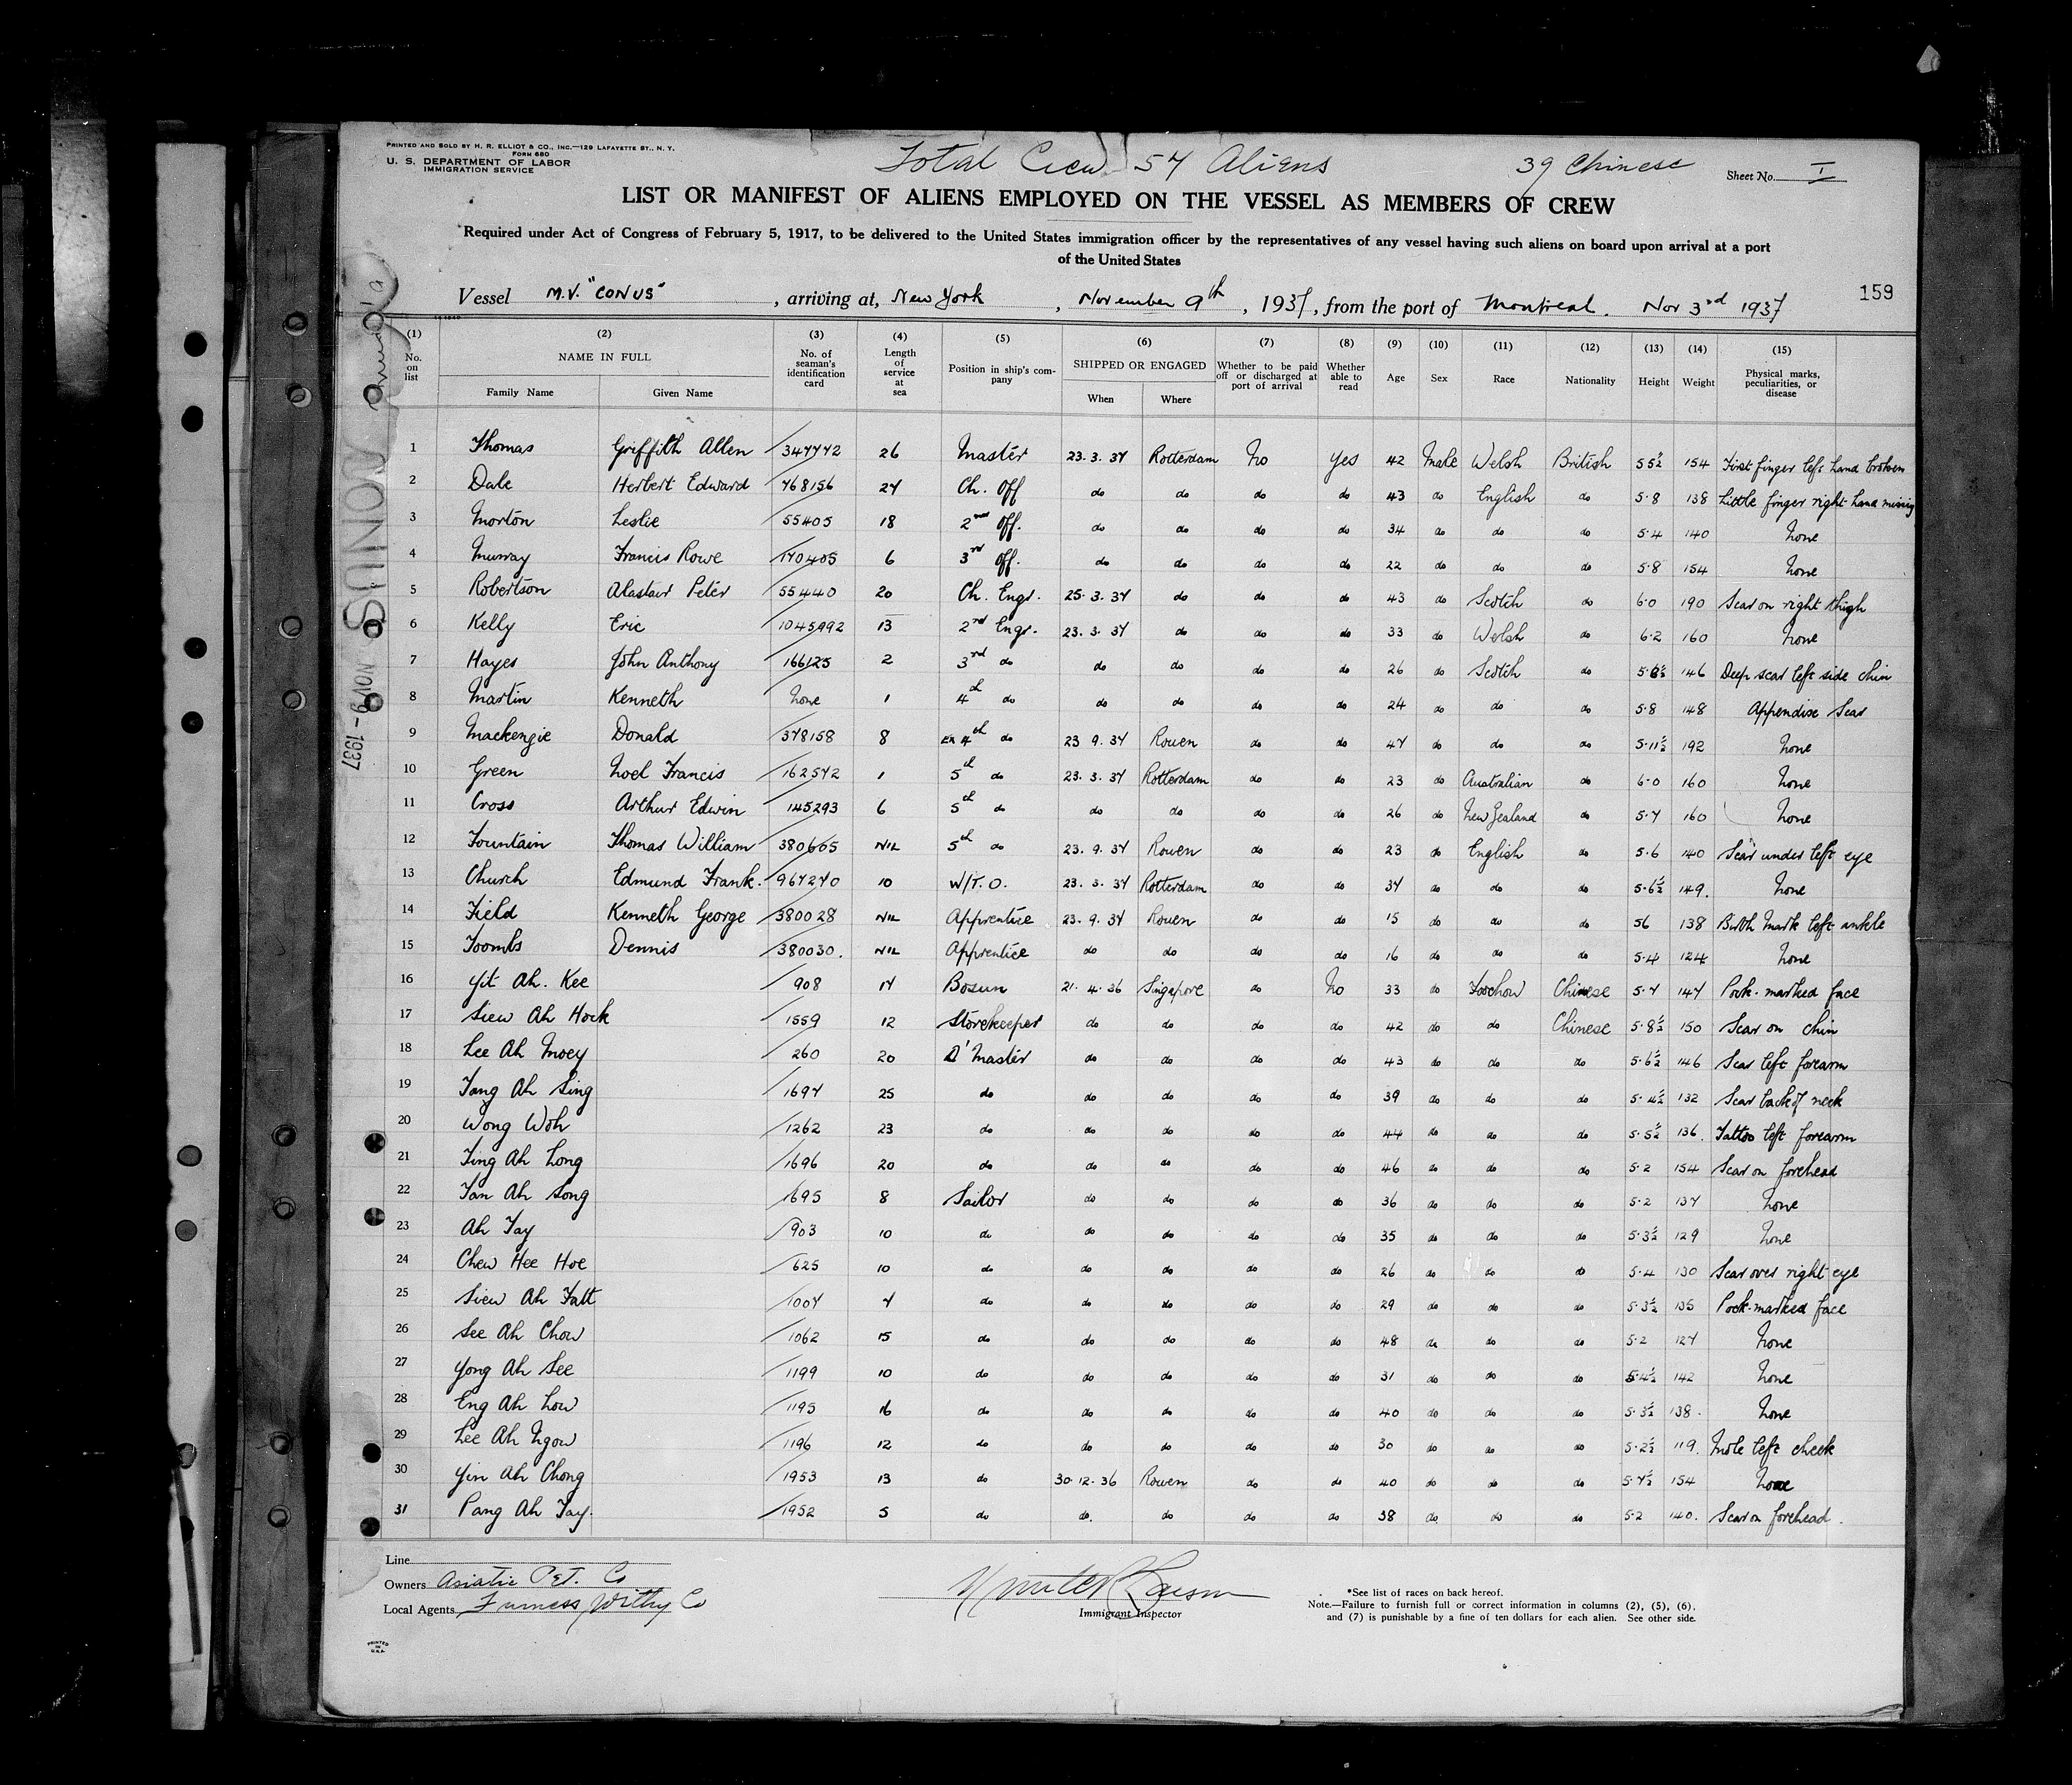 PRINTED AND SOLD BY H. R. ELLIOT & CO., INC.—129 LAFAYETTE ST., N. Y.
FORM 680
U. S. DEPARTMENT OF LABOR
IMMIGRATION SERVICE
Total Crew 54 Aliens 39 Chinese Sheet No. I
LIST OR MANIFEST OF ALIENS EMPLOYED ON THE VESSEL AS MEMBERS OF CREW
Required under Act of Congress of February 5, 1917, to be delivered to the United States immigration officer by the representatives of any vessel having such aliens on board upon arrival at a port
of the United States
159
Vessel M.V. "CONUS", arriving at, New York, November 9th, 1937, from the port of Montreal. Nov 3rd 1937
CONUS NOV 9-1937
(1) No. on list (2) NAME IN FULL Family Name Given Name (3) No. of seaman's identification card (4) Length of service at sea (5) Position in ship's company (6) SHIPPED OR ENGAGED When Where (7) Whether to be paid off or discharged at port of arrival (8) Whether able to read (9) Age (10) Sex (11) Race (12) Nationality (13) Height (14) Weight (15) Physical marks, peculiarities, or disease
1 Thomas Griffith Allen 347772 26 Master 23.3.37 Rotterdam No Yes 42 Male Welsh British 5 5½ 154 First finger left hand broken
2 Dale Herbert Edward 768156 27 Ch. Off do do do do 43 do English do 5.8 138 Little finger right hand missing
3 Morton Leslie 55405 18 2nd Off. do do do do 34 do do do 5.4 140 None
4 Murray Francis Rowe 170405 6 3rd Off. do do do do 22 do do do 5.8 154 None
5 Robertson Alastair Peter 55440 20 Ch. Engr. 25.3.37 do do do 43 do Scotch do 6.0 190 Scar on right thigh
6 Kelly Eric 1045992 13 2nd Engr. 23.3.37 do do do 33 do Welsh do 6.2 160 None
7 Hayes John Anthony 166125 2 3rd do do do do do 26 do Scotch do 5.8½ 146 Deep scar left side chin
8 Martin Kenneth None 1 4th do do do do do 24 do do do 5.8 148 Appendise Scar
9 Mackenzie Donald 378158 8 Ex 4th do 23 9.37 Rouen do do 47 do do do 5.11½ 192 None
10 Green Noel Francis 162572 1 5th do 23.3.37 Rotterdam do do 23 do Australian do 6.0 160 None
11 Cross Arthur Edwin 145293 6 5th do do do do do 26 do New Zealand do 5.7 160 None
12 Fountain Thomas William 380665 NIL 5th do 23.9.37 Rouen do do 23 do English do 5.6 140 Scar under left eye
13 Church Edmund Frank. 967270 10 W/T.O. 23.3.37 Rotterdam do do 37 do do do 5.6½ 149. None
14 Field Kenneth George 380028 NIL Apprentice 23.9.37 Rouen do do 15 do do do 56 138 Birth Mark left ankle
15 Toombs Dennis 380030. NIL Apprentice do do do do 16 do do do 5.4 124 None
16 Yit Ah. Kee 908 17 Bosun 21.4.36 Singapore do No 33 do Foochow Chinese 5.7 147 Pock-marked face
17 Siew Ah Hock 1559 12 Storekeeper do do do do 42 do do Chinese 5.8½ 150 Scar on chin
18 Lee Ah Moey 260 20 Q'Master do do do do 43 do do do 5.6½ 146 Scar left forearm
19 Tang Ah Sing 1697 25 do do do do do 39 do do do 5.4½ 132 Scar back of neck
20 Wong Woh 1262 23 do do do do do 44 do do do 5.5½ 136. Tattoo left forearm
21 Ting Ah Long 1696 20 do do do do do 46 do do do 5.2 154 Scar on forehead
22 Tan Ah Song 1695 8 Sailor do do do do 36 do do do 5.2 137 None
23 Ah Tay 903 10 do do do do do 35 do do do 5.3½ 129 None
24 Chew Hee Hoe 625 10 do do do do do 26 do do do 5.4 130 Scar over right eye
25 Siew Ah Fatt 1007 7 do do do do do 29 do do do 5.3½ 135 Pock-marked face
26 See Ah Chow 1062 15 do do do do do 48 do do do 5.2 127 None
27 Yong Ah See 1199 10 do do do do do 31 do do do 5.4½ 142 None
28 Eng Ah Low 1195 16 do do do do do 40 do do do 5.3½ 138. None
29 Lee Ah Ngow 1196 12 do do do do do 30 do do do 5.2½ 119. Mole left cheek
30 Yin Ah Chong 1953 13 do 30.12.36 Rouen do do 40 do do do 5.7½ 154 None
31 Pang Ah Tay. 1952 5 do do. do do do 38 do do do 5.2 140. Scar on forehead.
Line
Owners Asiatic Pet. Co
Local Agents Furness Withy Co
Immigrant Inspector
*See list of races on back hereof.
Note.—Failure to furnish full or correct information in columns (2), (5), (6),
and (7) is punishable by a fine of ten dollars for each alien. See other side.
PRINTED IN U.S.A.